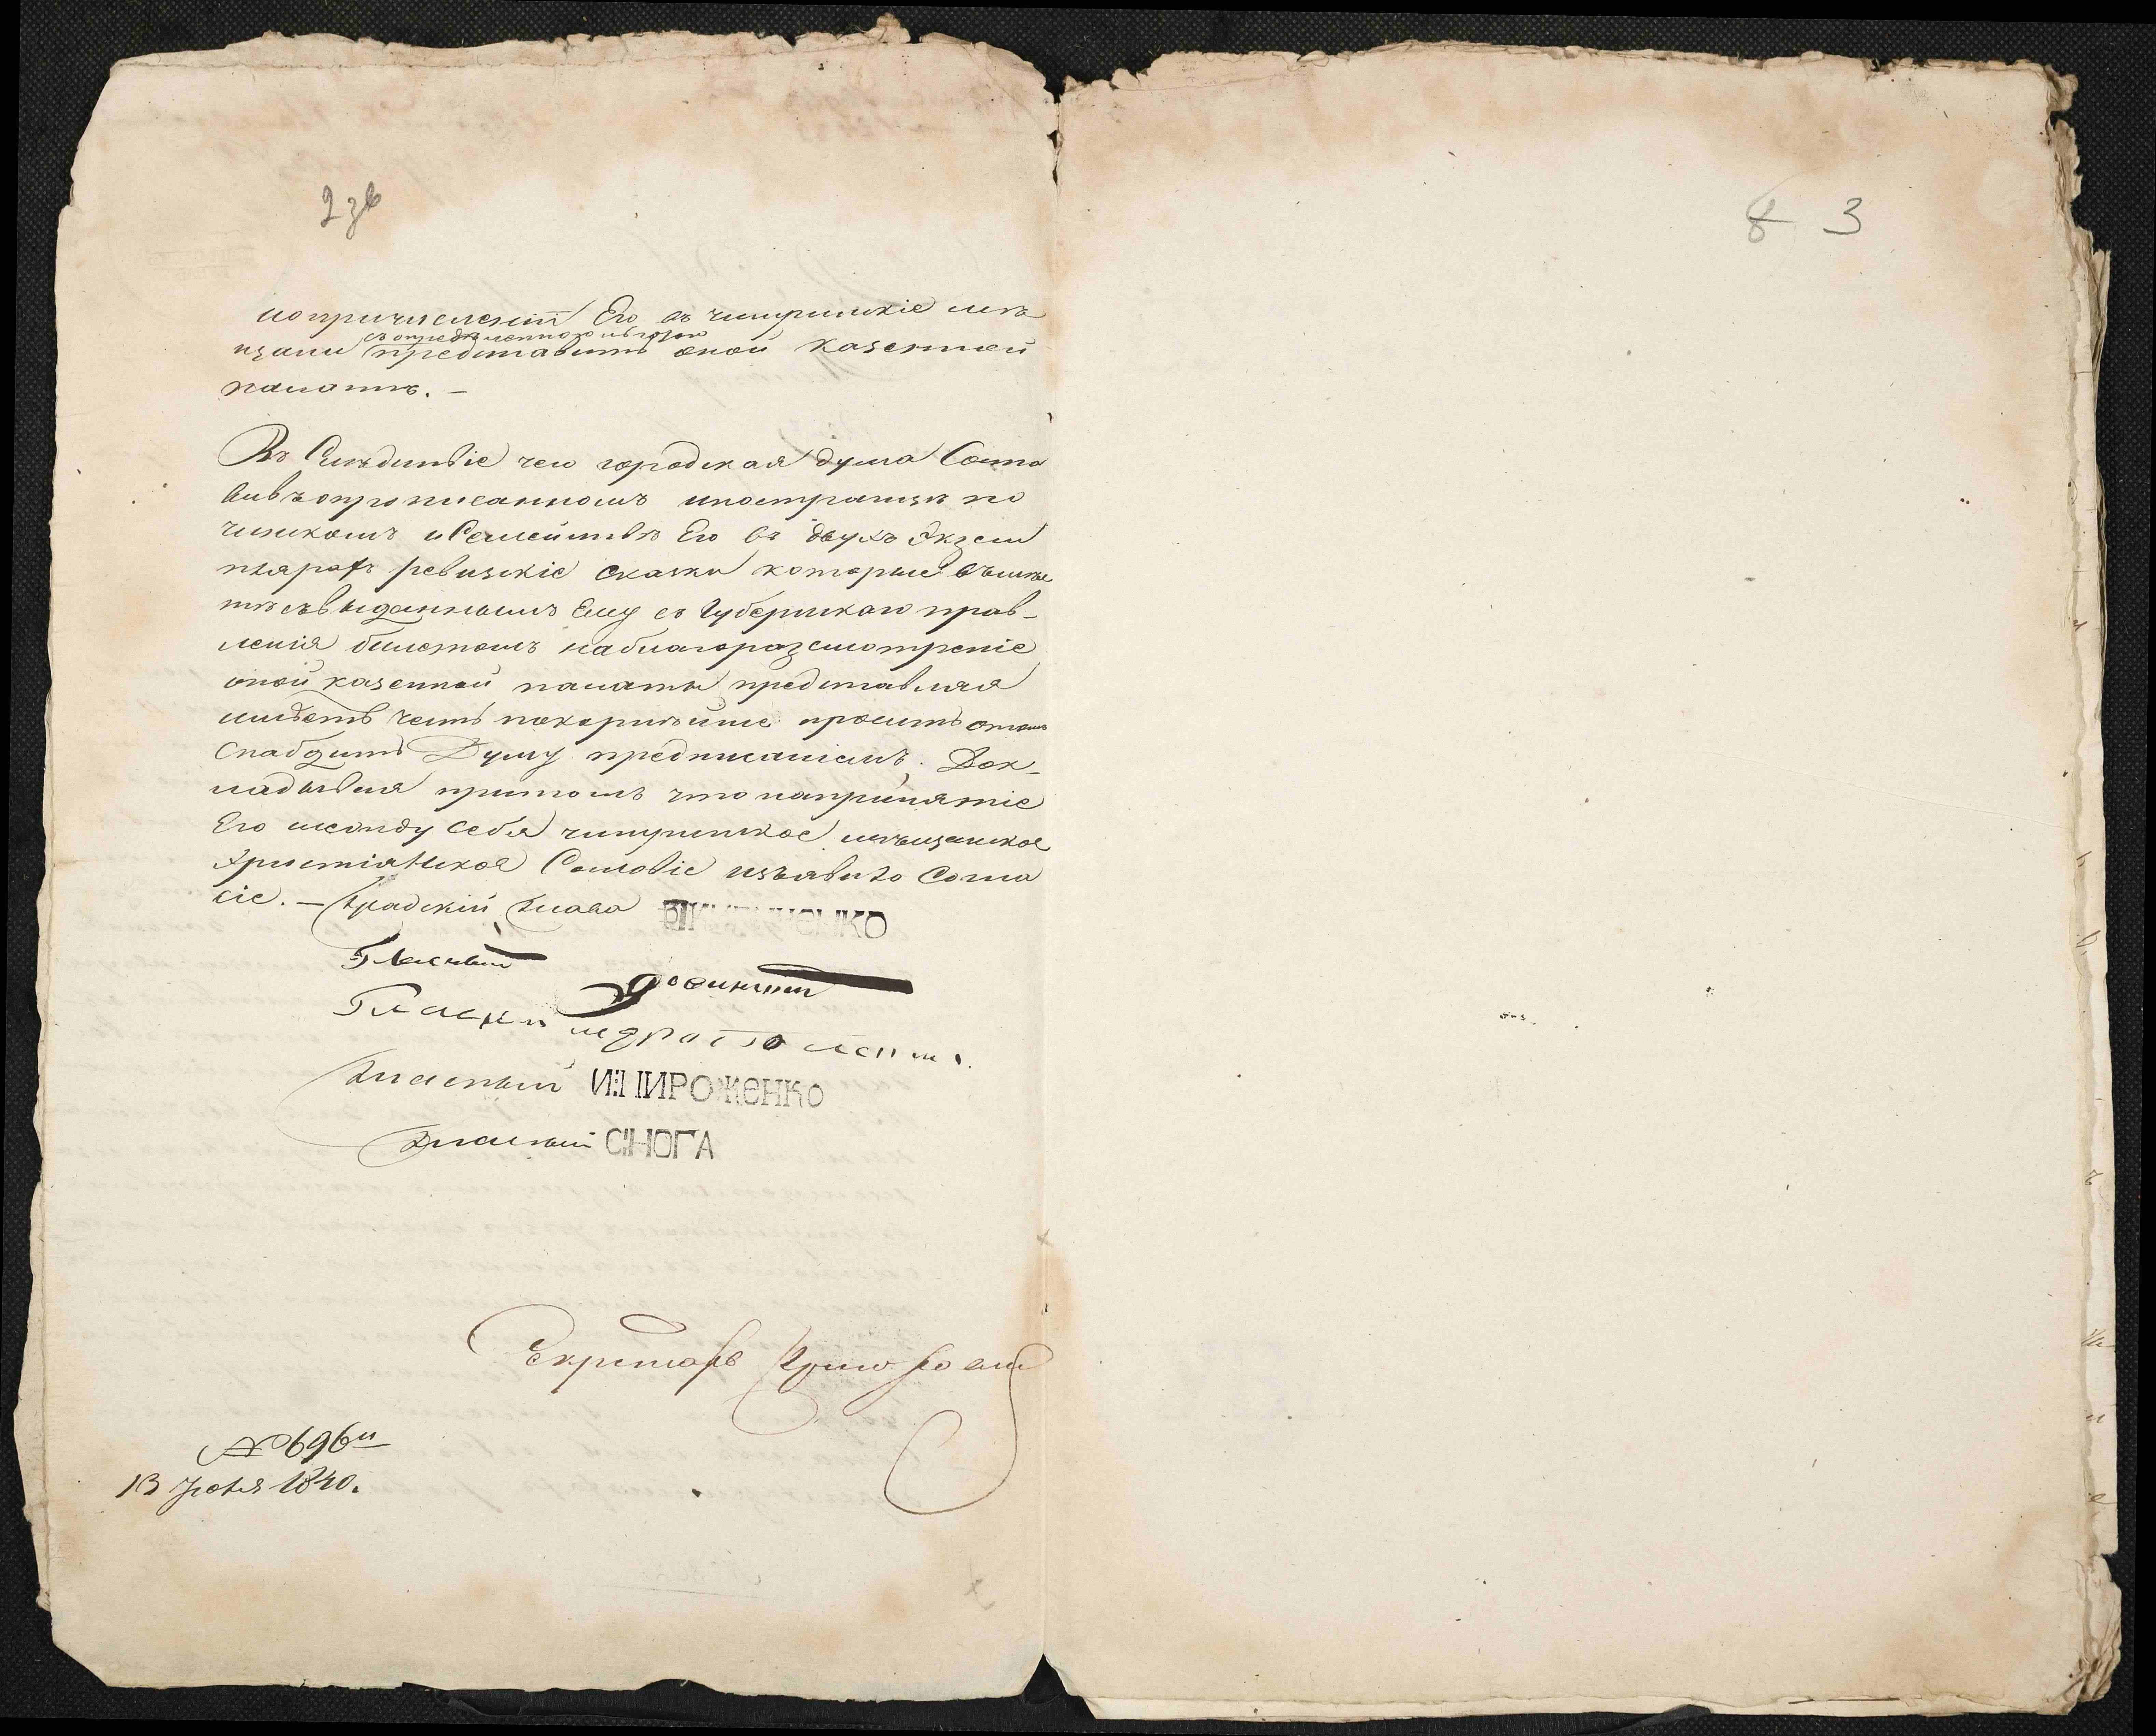 2зв
8 3
попричисленіи Его въ чигиринскіе мѣ
щани съ опредѣленною
представить оной казенной
палатѣ. —
Въ Слѣдствіе чего городская дума Соста
вивъ опрописанномъ иностранцѣ по
и Семействѣ Его въ двухъ Экзем
плярахъ ревизскіе сказки которые вмѣс
тѣ съ выданнымъ Ему съ Губернскаго прав-
ленія билетомъ на благоразсмотреніе
оной казенной палаты представляя
имѣетъ честь покорнѣйше просить отомъ
Снабдить Думу предписаніемъ. Док-
ладывая притомъ что напринятіе
Его между себя чигиринское мѣщанское
Христіянское Сословіе изъявило Согла
сіе. — Градскій Глава
Гласный
Гласный
Гласный И:ПИРОЖЕНКО
Гласный С:НОГА
Секретарь
№ 696й
13 Іюня 1840.